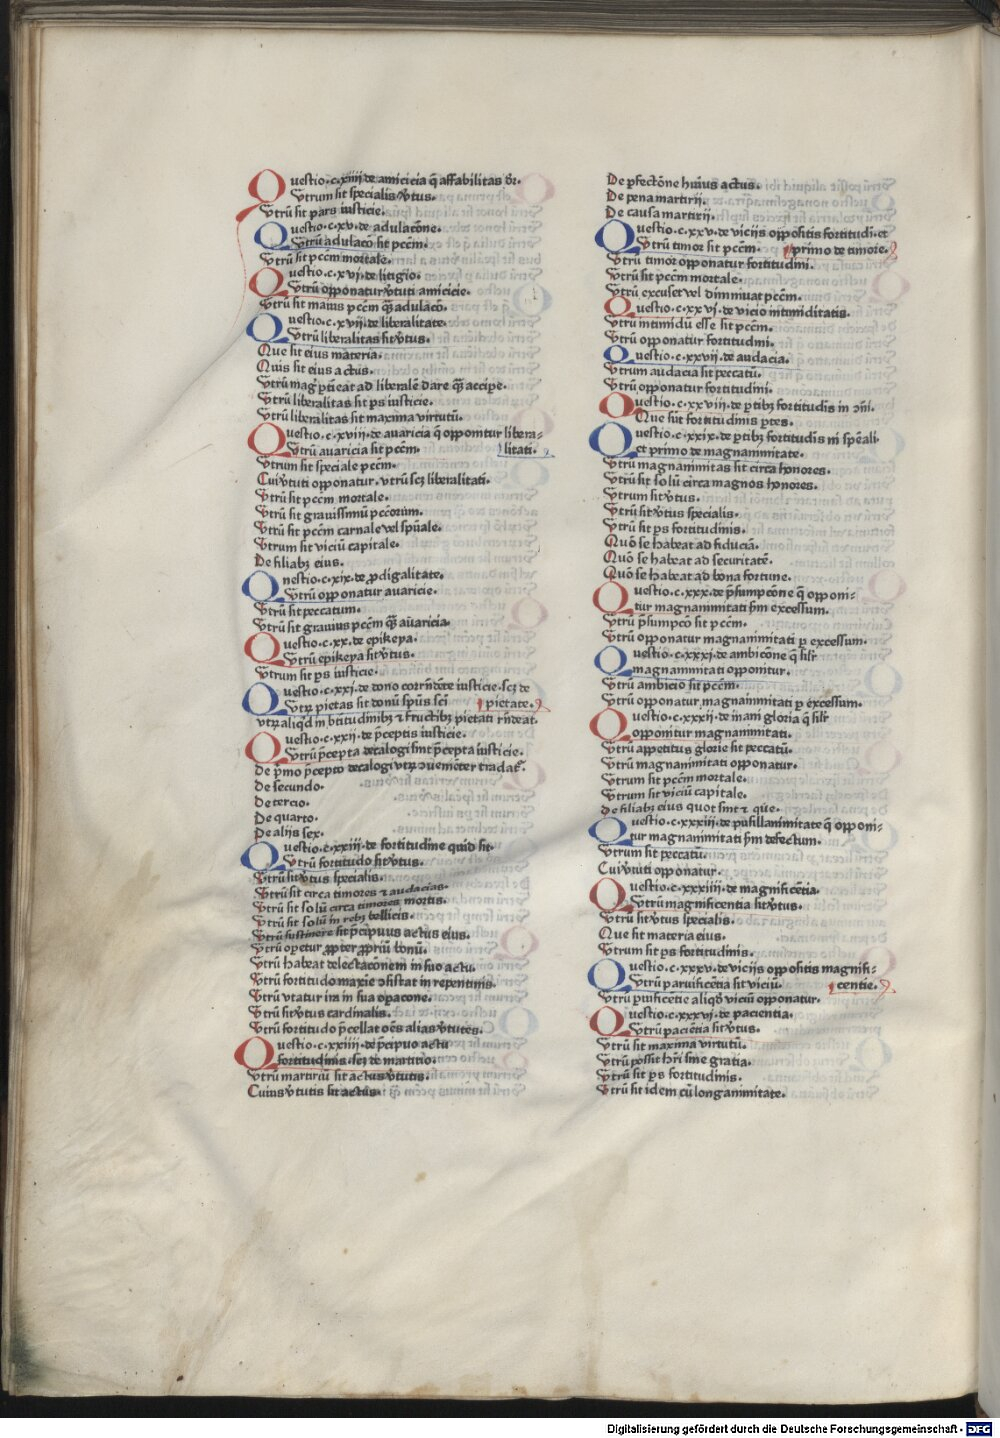 Questio.c.xiiij.de amicicia q̄ affabilitas dr̄.
Vtrum sit specialis v̓tus.
Vtrū sit pars iusticie.
Questio.c.xv.de adulacōne.
Vtrū adulacō sit pccm̄.
Vtrū sit pccm̄ mortale.
Questio.c.xvj.de litigio.
Vtrū opponatur v̓tuti amicicie.
Vtrū sit maius pccm̄ q̄ȝ adulacō.
Questio.c.xvij.de liberalitate.
Vtrū liberalitas sit v̓tus.
Que sit eius materia.
Quis sit eius actus.
Vtrū mag̓ pertīeat ad liberalē dare q̄ȝ accipe.
Vtrū liberalitas sit ps iusticie.
Vtrū liberalitas sit maxima virtutū.
Questio.c.xviij.de auaricia q̄ opponitur libera-
Vtrū auaricia sit pccm̄. litati.
Vtrum sit speciale pccm̄.
Cui v̓tuti opponatur.vtrū scȝ liberalitati.
Vtrū sit pccm̄ mortale.
Vtrū sit grauissimū pctōrum.
Vtrū sit pccm̄ carnale vel spūale.
Vtrum sit viciū capitale.
De filiabȝ eius.
Questio.c.xix.de pdigalitate.
Vtrū opponatur auaricie.
Vtrū sit peccatum.
Vtrū sit grauius pccm̄ q̄ȝ auaricia.
Questio.c.xx.de epikeya.
Vtrū epikeya sit v̓tus.
Vtrum sit ps iusticie.
Questio.c.xxj.de dono corrn̄dēte iusticie.scȝ de
Vtrȝ pietas sit donū spūs sc̄i pietate.
vtrȝ aliq̓d in btitudinibȝ ⁊ fructibȝ pietati rn̄deat.
Questio.c.xxij.de p̄ceptis iusticie.
Vtrū p̄cepta decalogi sint p̄cepta iusticie.
De p̄mo p̄cepto decalogi vtrȝ ↄuenieter tradat᷑.
De secundo.
De tercio.
De quarto.
De alijs sex.
Questio.c.xxiij.de fortitudīne quid sit.
Vtrū fortitudo sit v̓tus.
Vtrū sit v̓tus specialis.
Vtrū sit circa timores ⁊ audacias.
Vtrū sit solū circa timores mortis.
Vtrū sit solū in rebȝ bellicis.
Vtrū sustinere sit p̄cipuus actus eius.
Vtrū opetur ppter ppriū bonū.
Vtrū habeat delectacōnem in suo actu.
Vtrū fortitudo maxie ↄsistat in repentinis.
Vtrū vtatur ira in sua opacone.
Vtrū sit v̓tus cardinalis.
Vtrū fortitudo p̄cellat oēs alias v̓tutes.
Questio.c.xxiiij.de p̄cipuo actu
fortitudinis.scȝ de martirio.
Vtrū martiriū sit actus v̓tutis.
Cuius v̓tutis sit actus.
De pfectōne huius actus.
De pena martirij.
De causa martirij.
Questio.c.xxv.de vicijs oppositis fortitudī.et
Vtrū timor sit pccm̄. primo de timore.
Vtrū timor opponatur fortitudini.
Vtrū sit pccm̄ mortale.
Vtrū excuset vel diminuat pccm̄.
Questio.c.xxvj.de vicio intimiditatis.
Vtrū intimidū esse sit pccm̄.
Vtrū opponatur fortitudini.
Questio.c.xxvij.de audacia.
Vtrum audacia sit peccatū.
Vtrū opponatur fortitudini.
Questio.c.xxviij.de ptibȝ fortitudīs in ↄīni.
Que sūt fortitudinis ptes.
Questio.c.xxix.de ptibȝ fortitudīs in sp̄eali
et primo de magnanimitate.
Vtrū magnanimitas sit circa honores.
Vtrū sit solū circa magnos honores.
Vtrum sit v̓tus.
Vtrū sit v̓tus specialis.
Vtrū sit ps fortitudinis.
Quō se habeat ad fiduciā.
Quō se habeat ad securitatē.
Quō se habeat ad bona fortune.
Questio.c.xxx.de p̄sumpcōne q̄ opponi-
tur magnanimitati sm̄ excessum.
Vtrū p̄sumpcō sit pccm̄.
Vtrū opponatur magnanimitati p excessum.
Questio.c.xxxj.de ambicōne q̄ silr̄
magnanimitati opponitur.
Vtrū ambicio sit pccm̄.
Vtrū opponatur magnanimitati p excessum.
Questio.c.xxxij.de inani gloria q̄ silr̄
opponitur magnanimitati.
Vtrū appetitus glorie sit peccatū.
Vtrū magnanimitati opponatur.
Vtrum sit pccm̄ mortale.
Vtrum sit viciū capitale.
De filiabȝ eius quot sint ⁊ que.
Questio.c.xxxiij.de pusillanimitate q̄ opponi-
tur magnanimitati sm̄ defectum.
Vtrum sit peccatū.
Cui v̓tuti opponatur.
Questio.c.xxxiiij.de magnificētia.
Vtrū magnificentia sit v̓tus.
Vtrū sit v̓tus specialis.
Que sit materia eius.
Vtrum sit ps fortitudinis.
Questio.c.xxxv.de vicijs oppositis magnifi-
Vtrū paruificētia sit viciū. centie.
Vtrū pruificētie aliqd̓ viciū opponatur.
Questio.c.xxxvj.de paciencia.
Vtrū paciētia sit v̓tus.
Vtrū sit maxima virtutū.
Vtrū possit hr̄i sine gratia.
Vtrū sit ps fortitudinis.
Vtrū sit idem cū longanimitate.
Digitalisierung gefördert durch die Deutsche Forschungsgemeinschaft - DFG